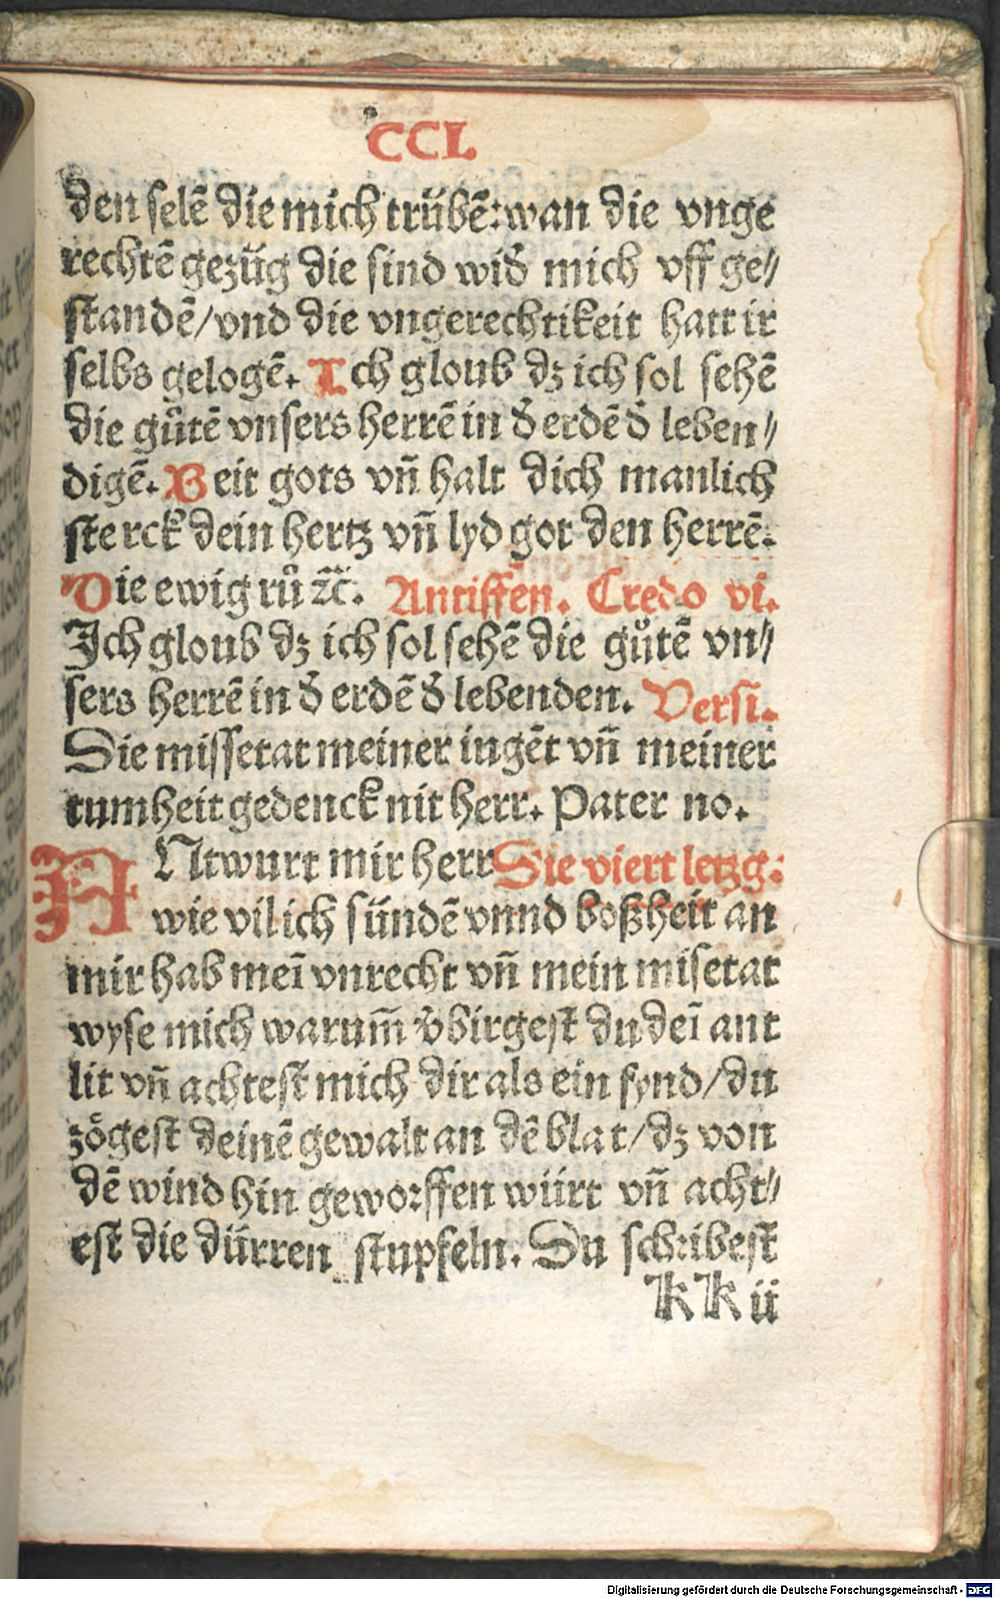 CCL
den selē die mich trübē: wan die vnge
rechtē gezüg die sind wid̄ mich vff ge⸗
standē/vnd die vngerechtikeit hatt ir
selbs gelogē. Ich gloub dz ich sol sehē
die gůtē vnsers herrē in d̄ erdē d̄ leben⸗
digē. Beit gots vn̄ halt dich manlich
sterck dein hertz vn̄ lyd got den herrē.
Die ewig rů ꝛc̄. Antiffen. Credo vi.
Ich gloub dz ich sol sehē die gůtē vn⸗
sers herrē in d̄ erdē d̄ lebenden. Versi.
Die missetat meiner iugēt vn̄ meiner
tumheit gedenck nit herr. Pater no.
ANtwurt mir herr Die viert letzg:
wie vil ich sündē vnnd boßheit an
mir hab meī vnrecht vn̄ mein misetat
wyse mich warum̄ v̄birgest du deī ant
lit vn̄ achtest mich dir als ein fynd/du
zögest deinē gewalt an dē blat/dz von
dē wind hin geworffen würt vn̄ acht⸗
est die dürren stupfeln. Du schribest
kk ii
Digitalisierung gefördert durch die Deutsche Forschungsgemeinschaft - DFG